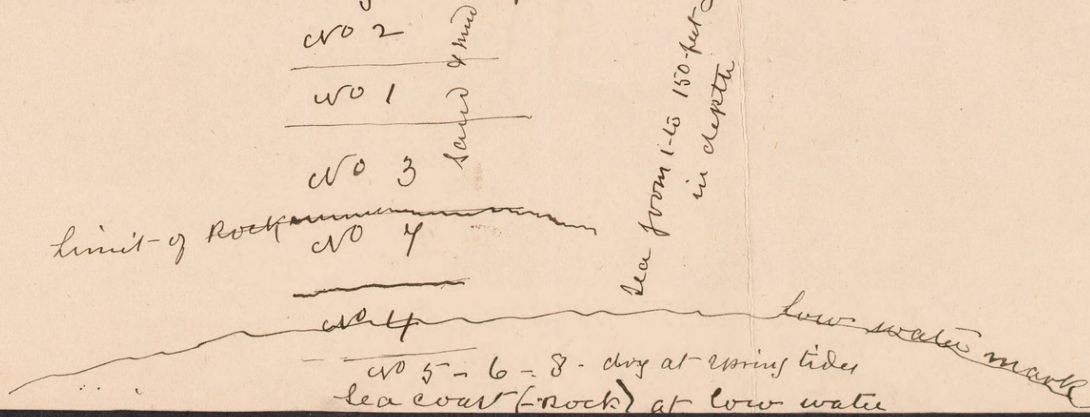 No 2
No 1
No 3
Sand & mud
Sea from 1 to 150 feet
in depth
Limit of Rock
No 7
No 4
Low water mark
No 5 - 6 - 8 - dry at spring tides
Sea coast (-Rock) at low water